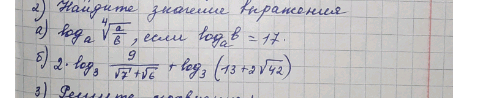 2) Найдите значение выражения
а) logₐ ⁴√(a/b), если logₐb = 17.
б) 2·log₃ 9/(√7+√6) + log₃(13+2√42)
3) Решите